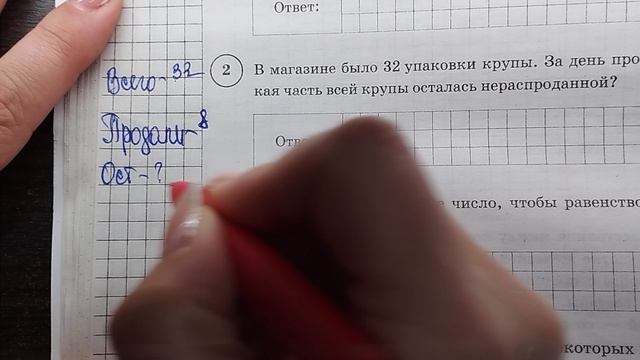 Ответ:
Всего - 32
2 В магазине было 32 упаковки крупы. За день про
кая часть всей крупы осталась нераспроданной?
Продали - 8
Отв
Ост - ?
число, чтобы равенство
которых